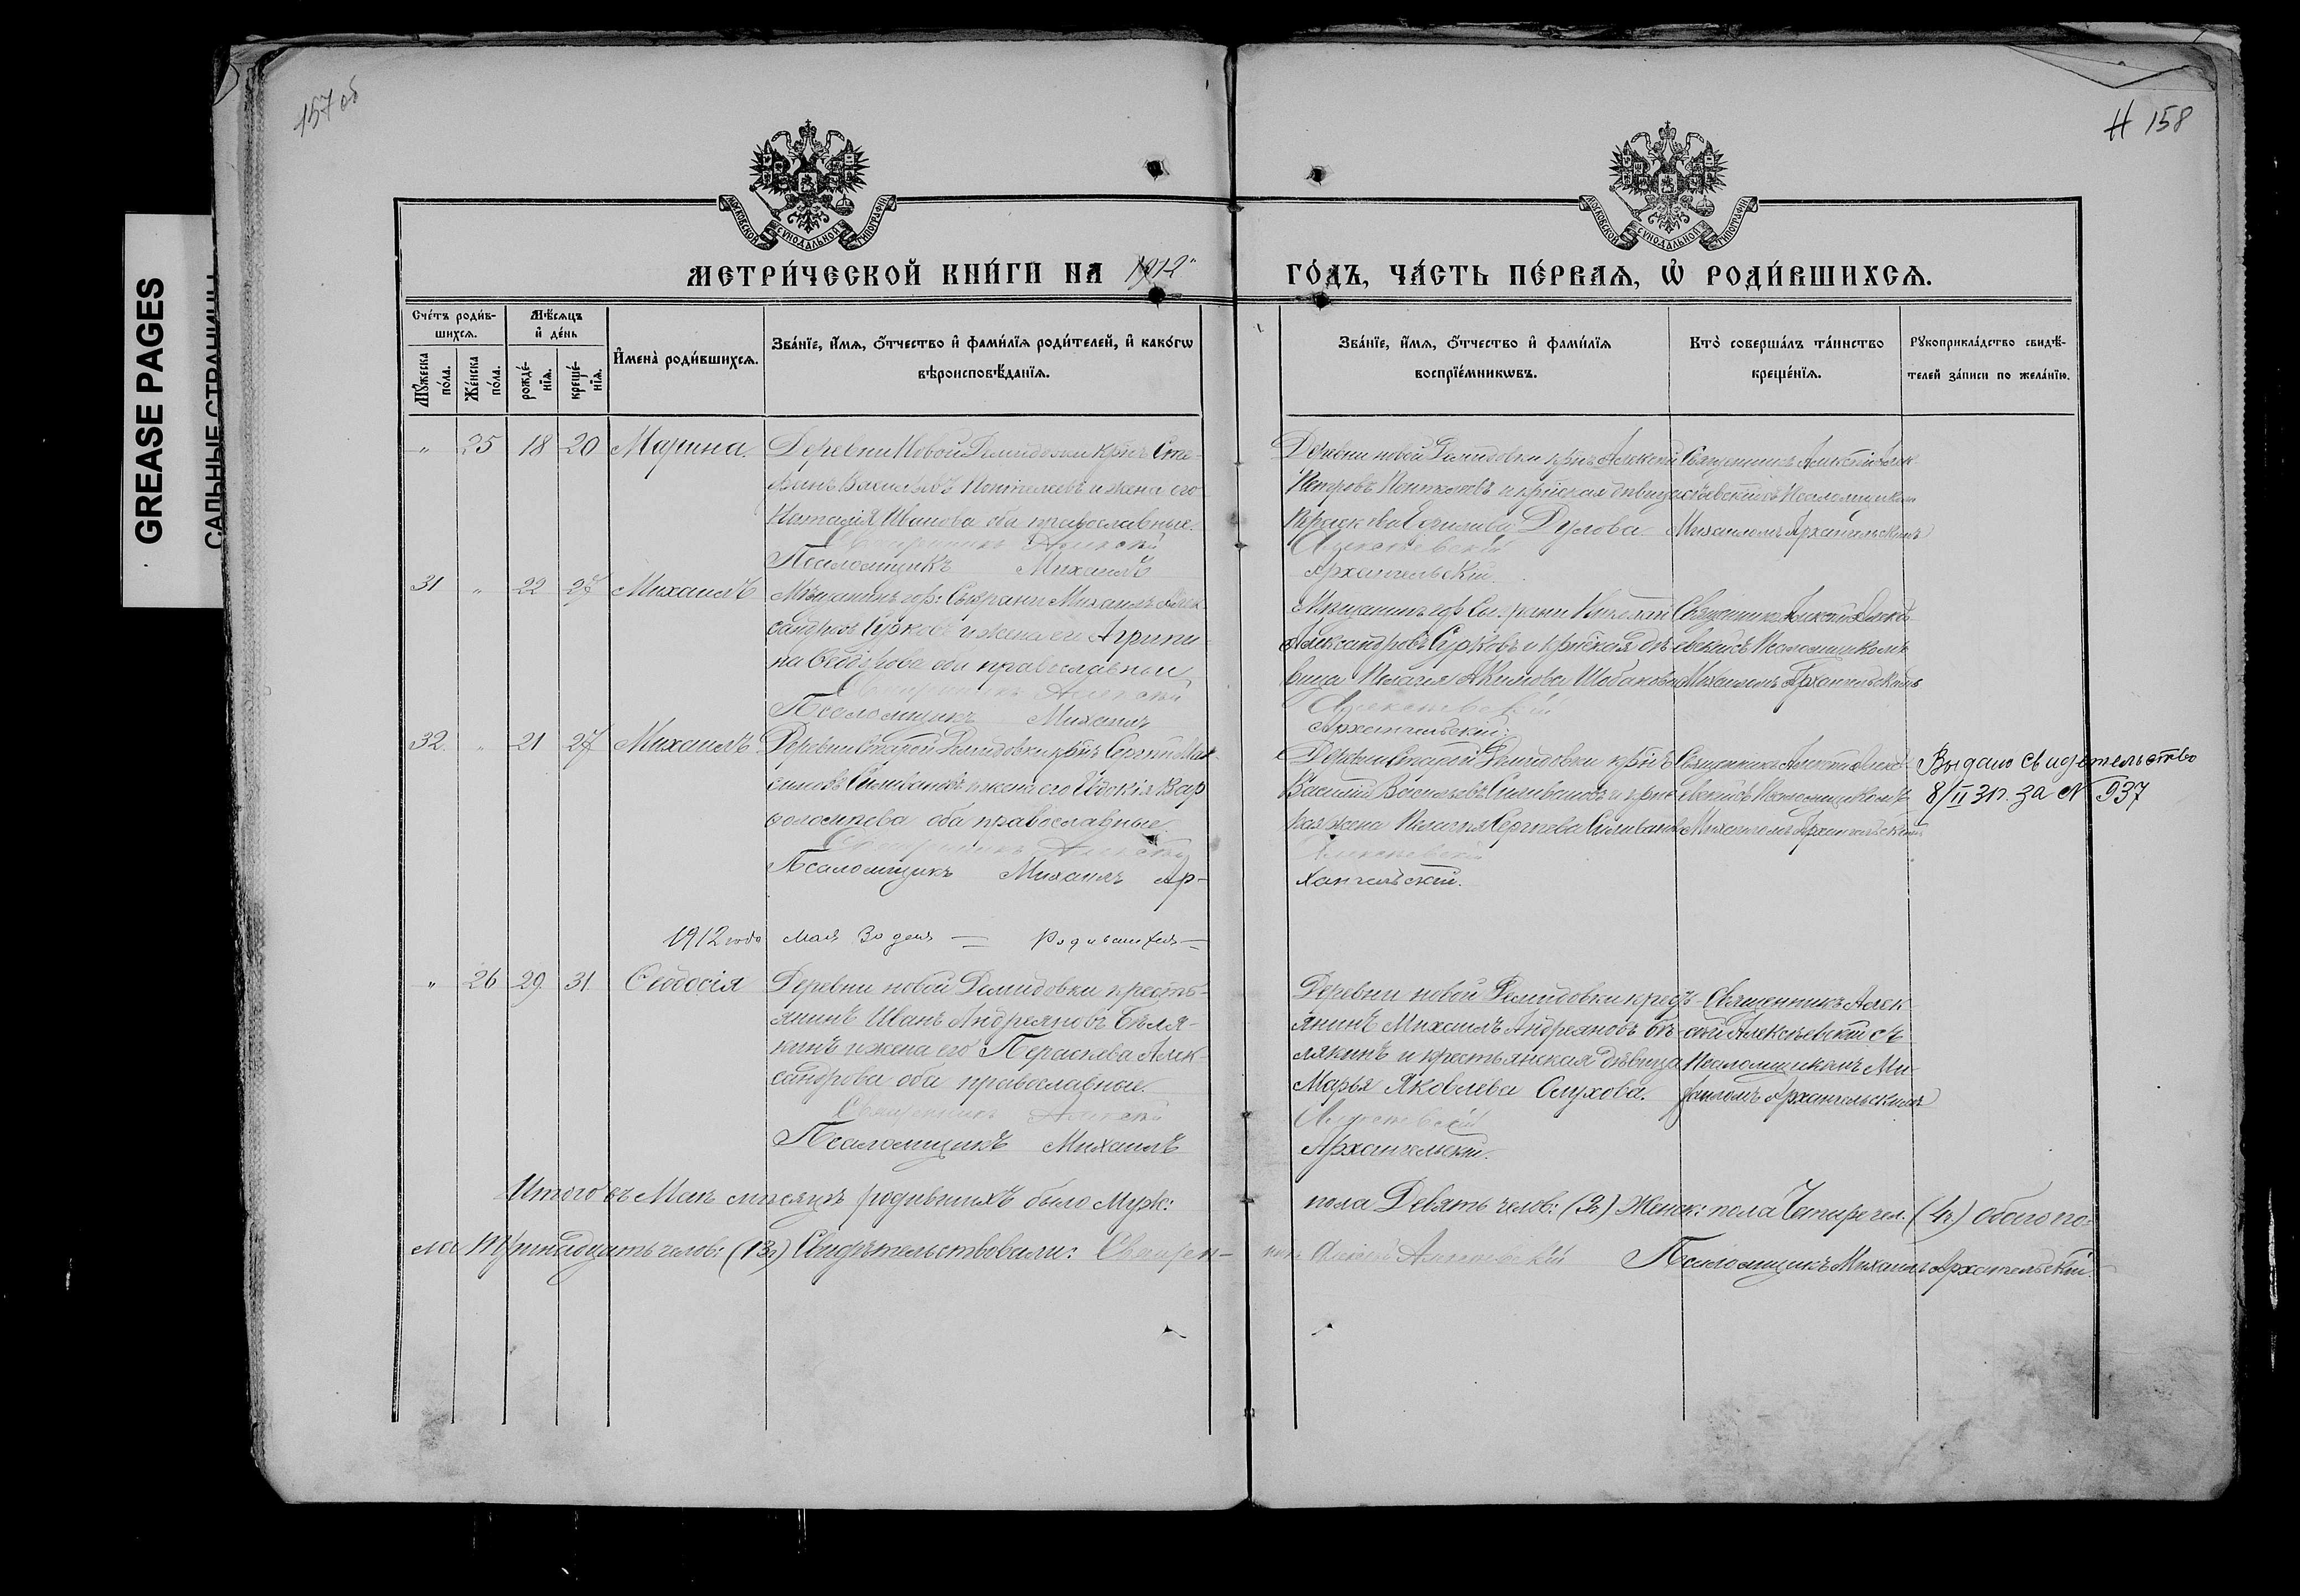 157 об
# 158
GREASE PAGES
САЛЬНЫЕ СТРАНИЦЫ
МОСКОВСКОЙ СѴНОДАЛЬНОЙ ТИПОГРАФІИ
МОСКОВСКОЙ СѴНОДАЛЬНОЙ ТИПОГРАФІИ
МЕТРИ́ЧЕСКОЙ КНИ́ГИ НА 1912
ГО́ДЪ, ЧА́СТЬ ПЕ́РВАѦ, Ѽ РОДИ́ВШИХСѦ.
Сче́тъ роди́в-
шихсѧ.
Мꙋжеска по́ла.
Же́нска по́ла.
Мѣ́сѧцъ
и҆ де́нь
рожде́-
нїѧ.
креще́-
нїѧ.
И҆мена̀ роди́вшихсѧ.
Зва́нїе, и҆́мѧ, ѻ҆́тчество и҆ фами́лїѧ роди́телей, и҆ како́гѡ
вѣроисповѣ́данїѧ.
Зва́нїе, и҆́мѧ, ѻ҆́тчество и҆ фами́лїѧ
воспрїе́мникѡвъ.
Кто̀ соверша́лъ та́инство
креще́нїѧ.
Рꙋкоприкла́дство свидѣ́-
телей за́писи по жела́нїю.
" 25 18 20 Марина.
Деревни Новой Демидовки кр-нъ Сте-
и жена его
Наталія Иванова оба православные.
Священникъ Алексѣй
Псаломщикъ Михаилъ
Деревни новой Демидовки кр-нъ Алексѣй
Петровъ
Дулова.
Алексѣевскій
Архангельскій.
Священникъ Алексѣй Алек
сѣевскій съ Псаломщикомъ
Михаиломъ Архангельскимъ
31 " 22 27 Михаилъ
Мѣщанинъ гор: Сызрани Михаилъ Алек
сандровъ Сурковъ и жена его Агрипи-
на Ѳедорова оба православные
Священникъ Алексѣй
Псаломщикъ Михаилъ
Мѣщанинъ гор. Сызрани
Александровъ Сурковъ и крестьянская дѣ-
вица Пелагея Акимова
Алексѣевскій
Архангельскій.
Священникъ Алексѣй Алексѣ-
евскій съ Псаломщикомъ
Михаиломъ Архангельскимъ
32. " 21 27 Михаилъ
Деревни Старой Демидовки кр-нъ Сергѣй Мак
симовъ Силивановъ и жена его Евдокія Вар
ѳоломѣева оба православные.
Священникъ Алексѣй
Псаломщикъ Михаилъ Ар-
Деревни Старой Демидовки кр-нъ
Василій Васильевъ Силивановъ и крест
кая жена Пелагея Сергѣева Силиванова
Алексѣевскій
хангельскій.
Священникъ Алексѣй Алексѣ-
евскій съ Псаломщикомъ
Михаиломъ Архангельскимъ
Выдано свидѣтельство
8/II 31г. за № 937
1912 года Мая 30 дня — Родившихся —
" 26 29 31 Ѳеодосія
Деревни новой Демидовки кресть-
янинъ Иванъ Андреяновъ Бѣля-
кинъ и жена его Пераскева Алек-
сандрова оба православные.
Священникъ Алексѣй
Псаломщикъ Михаилъ
Деревни новой Демидовки кресть-
янинъ Михаилъ Андреяновъ Бѣ-
лякинъ и крестьянская дѣвица
Марья Яковлева Слухова.
Алексѣевскій
Архангельскій.
Священникъ Алек
сѣй Алексѣевскій съ
Псаломщикомъ Ми-
хаиломъ Архангельскимъ
Итого въ Маѣ мѣсяцѣ родившихъ было Муж:
пола Девять челов: (9) Женск: пола Четыре чел. (4) обоего по-
ла Тринадцать челов: (13) Свидѣтельствовали: Священ-
никъ Алексѣй Алексѣевскій Псаломщикъ Михаилъ Архангельскій.